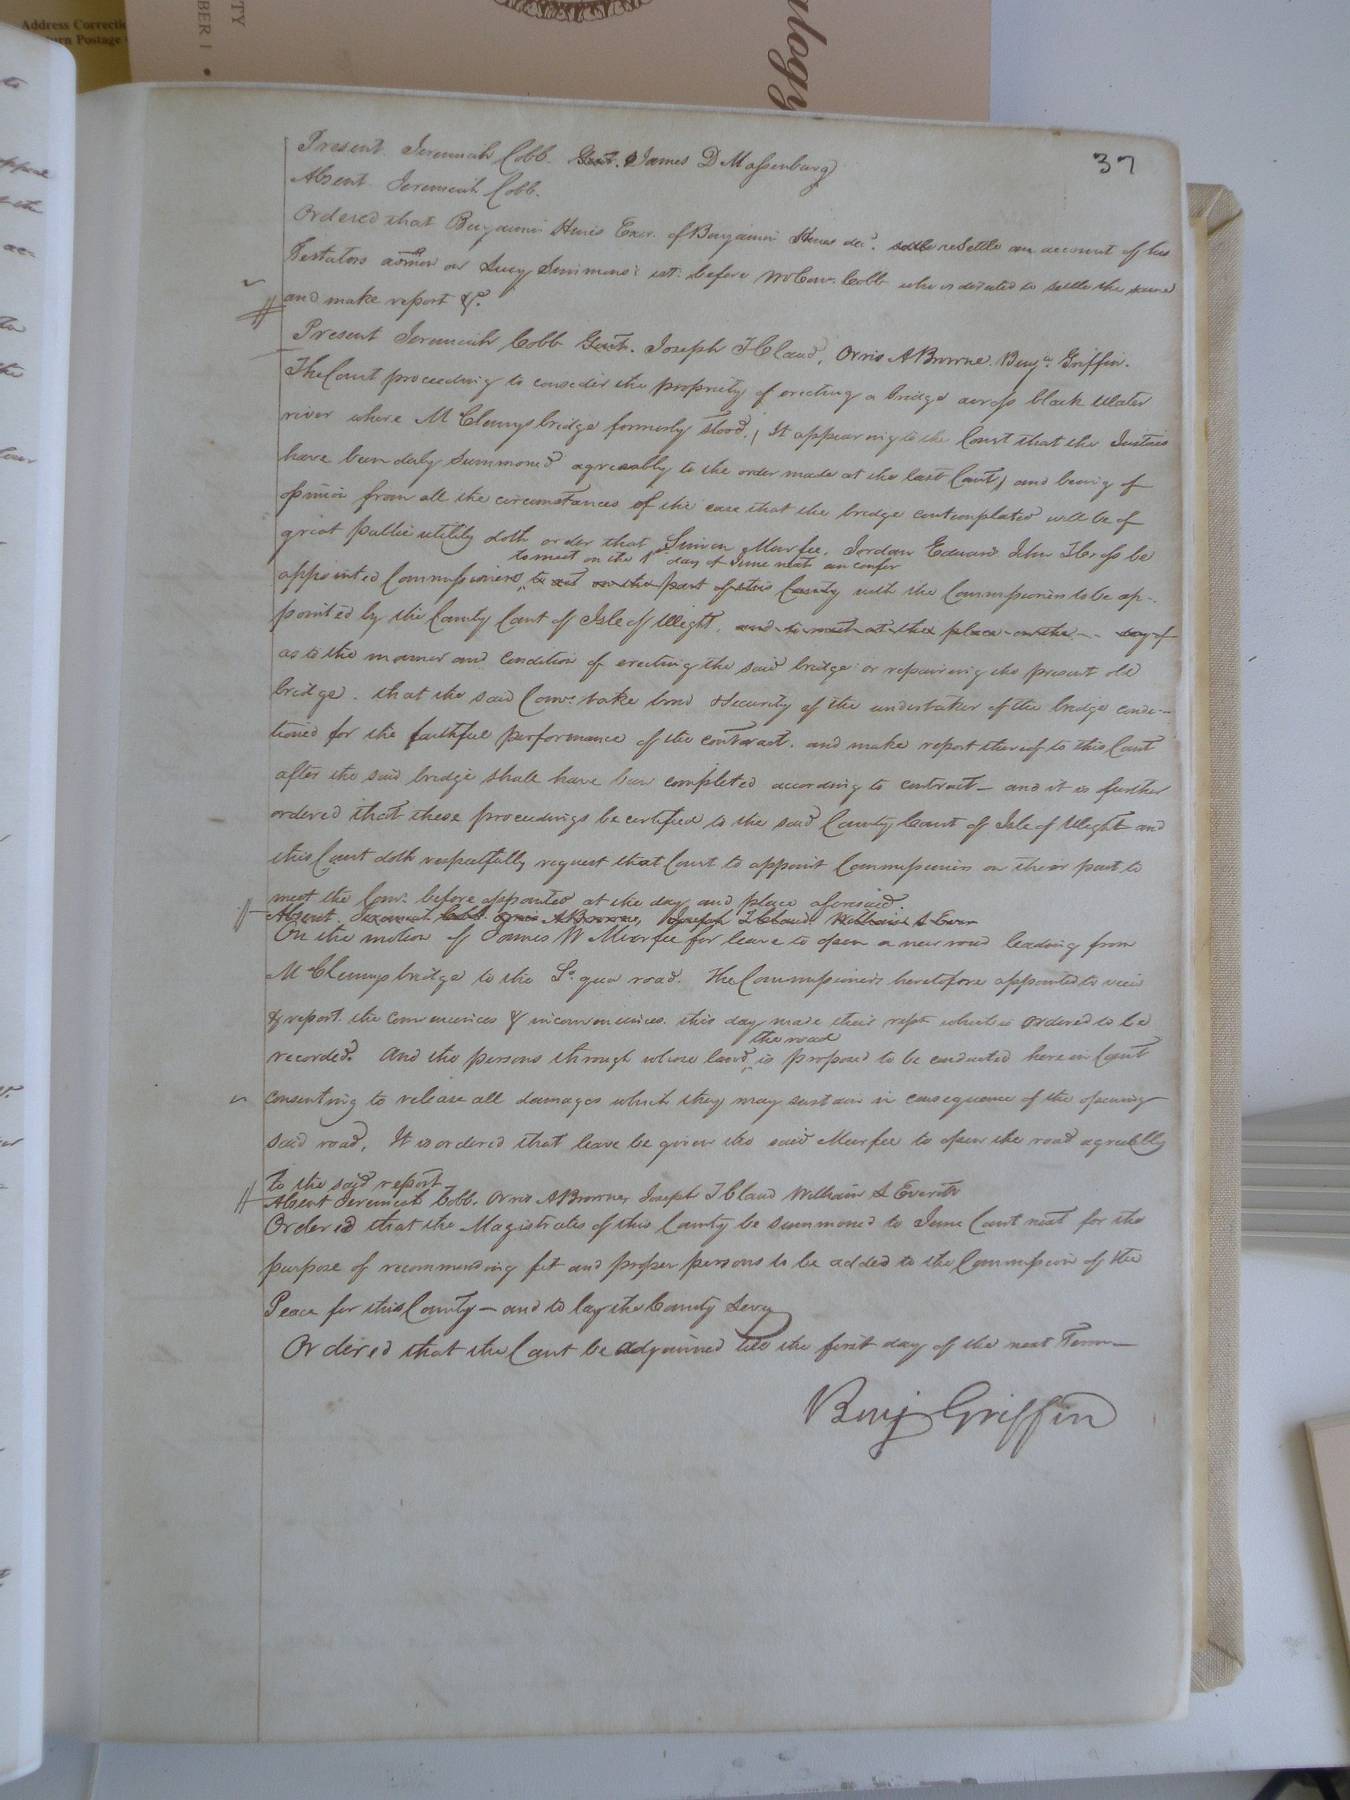 Address Correctio
urn Postage
TY
BER 1 •
alogy
37
Present Jeremiah Cobb Gent. James D Massenburg
Absent Jeremiah Cobb.
Ordered that Benjamin Hines Exor. of Benjamin Hines decd. settle resettle an account of his
Testators admon on Lucy Simmons's est: before Wm Cobb who is directed to settle the same
and make report &c.
Present Jeremiah Cobb Gent. Joseph T Claud, Orris A Browne. Benja Griffin.
The Court proceeding to consider the propriety of erecting a bridge across black Water
river where McClenys bridge formerly stood, It appearing to the Court that the Justices
have been duly Summoned agreeably to the order made at the last Court, and being of
opinion from all the circumstances of the case that the bridge contemplated will be of
great public utility doth order that Simon Murfee, Jordan Edwards John T Cross be
to meet on the 1st day of June next an confer
appointed Commissioners to act on the part of this County with the Commissioners to be ap-
pointed by the County Court of Isle of Wight, and to meet at the place on the -- day of
as to the manner and condition of erecting the said bridge or repairing the present old
bridge. that the said Comrs. take bond & Security of the undertaker of the bridge condi-
tioned for the faithful performance of the contract. and make report thereof to this Court
after the said bridge shall have been completed according to contract — and it is further
ordered that these proceedings be certified to the said County Court of Isle of Wight and
this Court doth respectfully request that Court to appoint Commissioners on their part to
meet the Comrs. before appointed at the day and place aforesaid.
Absent Jeremiah Cobb Orris A Browne, Joseph T Claud William S Ever
On the motion of James W Murfee for leave to open a new road leading from
McClenys bridge to the So quo road. The Commissioners heretofore appointed to view
& report the conveniences & inconveniences this day made their rept which is ordered to be
the road
recorded. And the persons through whose land is proposed to be conducted here in Court
consenting to release all damages which they may sustain in consequence of the opening
said road, It is ordered that leave be given the said Murfee to open the road agreeably
to the said report
Absent Jeremiah Cobb. Orris A Browne, Joseph T Claud William S Everitt
Ordered that the Magistrates of this County be summoned to June Court next for the
purpose of recommending fit and proper persons to be added to the Commission of the
Peace for this County — and to lay the County Levy
Ordered that the Court be adjourned till the first day of the next Term —
Benj Griffin